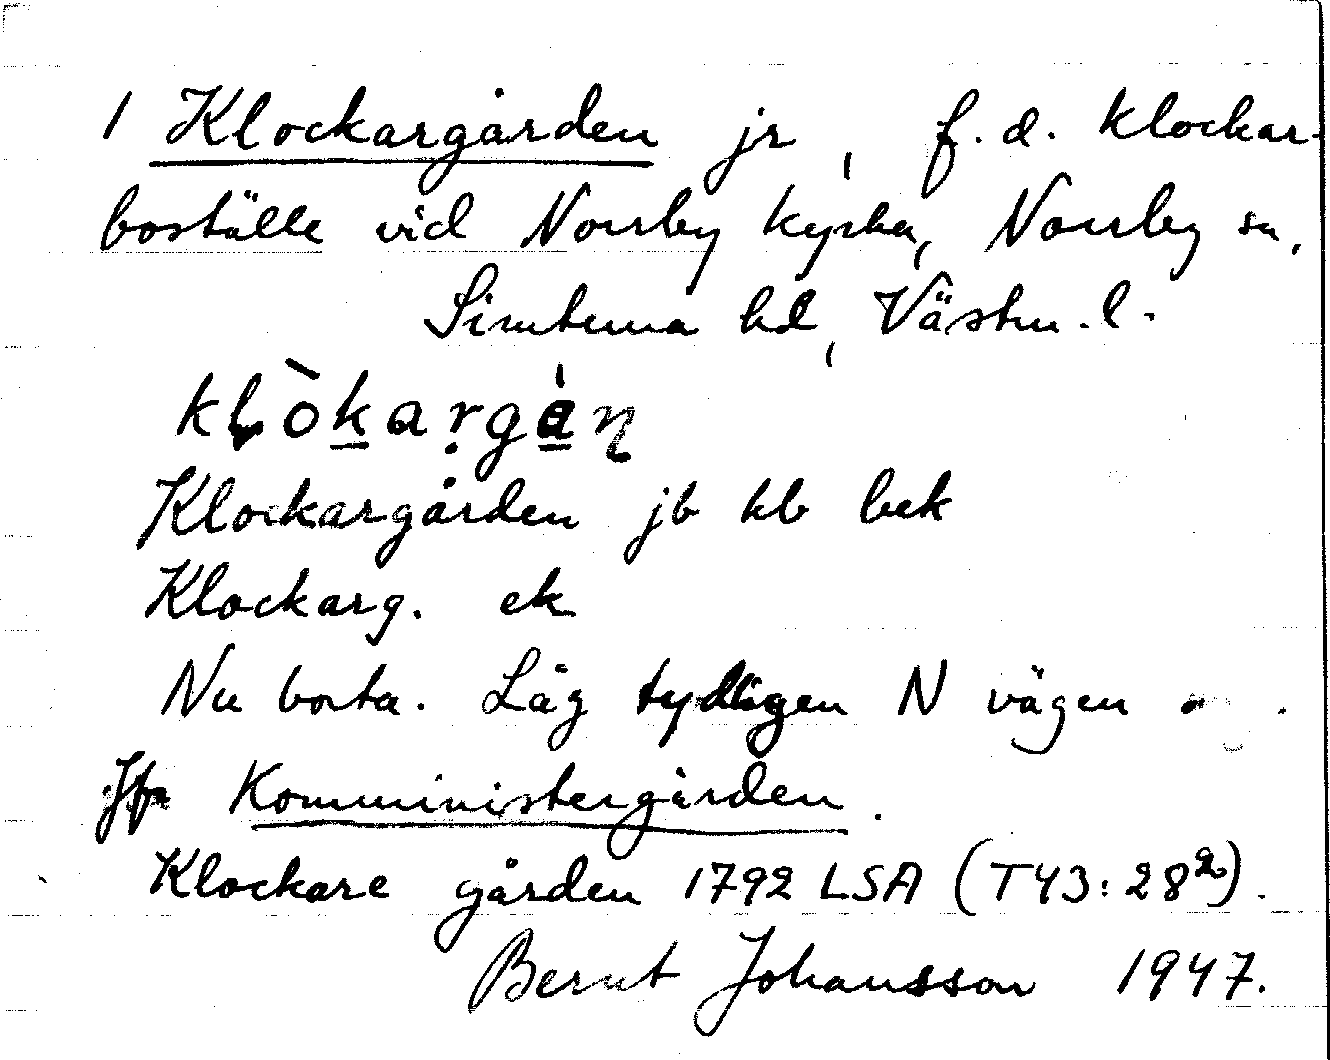 1 Klockargården jr, f.d. klockar-
boställe vid Norrby kyrka, Norrby sn,
Simtuna hd, Västm. l.
kḷòkarg̣ạ̊̀n
Klockargården jb kb bek
Klockarg. ek
Nu borta. Låg tydligen N vägen
Jfr Komministergården.
Klockare gården 1792 LSA (T43:28²).
Bernt Johansson 1947.